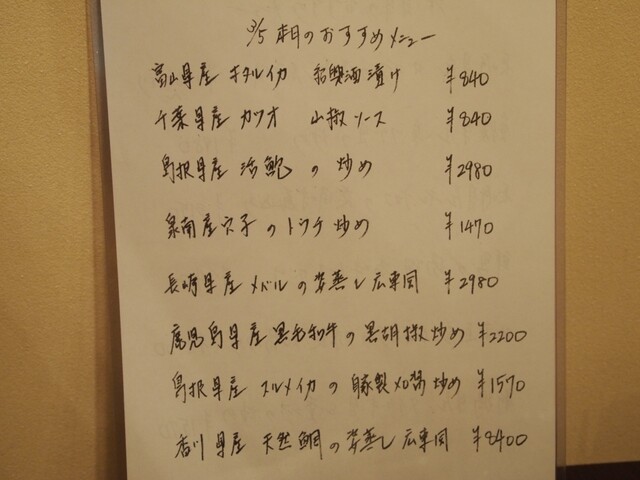 3/5 本日のおすすめメニュー
富山県産 ホタルイカ 紹興酒漬け ¥840
千葉県産 カツオ 山椒ソース ¥840
島根県産 活鮑の炒め ¥2980
泉南産穴子のトウチ炒め ¥1470
長崎県産 メバルの姿蒸し広東風 ¥2980
鹿児島県産黒毛和牛の黒胡椒炒め ¥2200
島根県産 スルメイカの自家製XO醤炒め ¥1570
香川県産 天然鯛の姿蒸し広東風 ¥8400